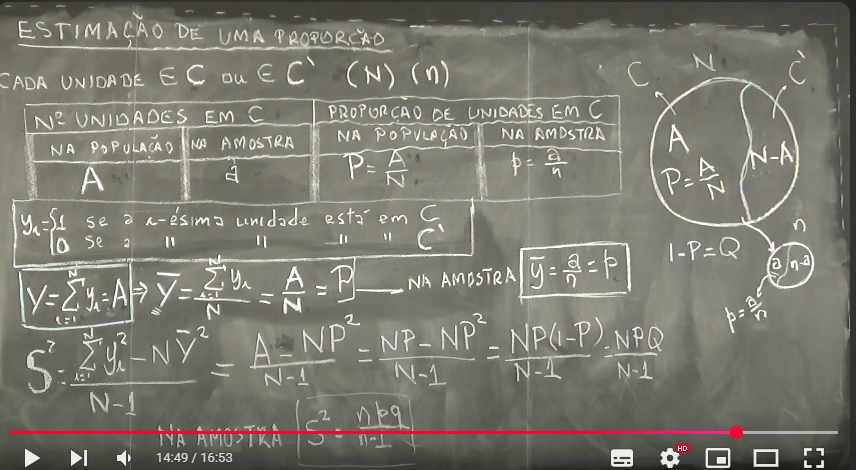 ESTIMAÇÃO DE UMA PROPORÇÃO
CADA UNIDADE ∈ C OU ∈ C` (N) (n)
Nº UNIDADES EM C PROPORÇÃO DE UNIDADES EM C
NA POPULAÇÃO NA AMOSTRA NA POPULAÇÃO NA AMOSTRA
A a P = A/N p = a/n
yᵢ = {1 se a i-ésima unidade está em C
0 se a " " " " C`
Y = Σᵢ₌₁ᴺ yᵢ = A ⇒ Ȳ = Σᵢ₌₁ᴺ yᵢ / N = A/N = P → NA AMOSTRA ȳ = a/n = p
S² = (Σᵢ₌₁ᴺ yᵢ² - NȲ²)/(N-1) = (A - NP²)/(N-1) = (NP - NP²)/(N-1) = NP(1-P)/(N-1) = NPQ/(N-1)
NA AMOSTRA s² = npq/(n-1)
C N C`
A
P = A/N
N-A
1-P=Q
n
a n-a
p = a/n
14:49 / 16:53
HD